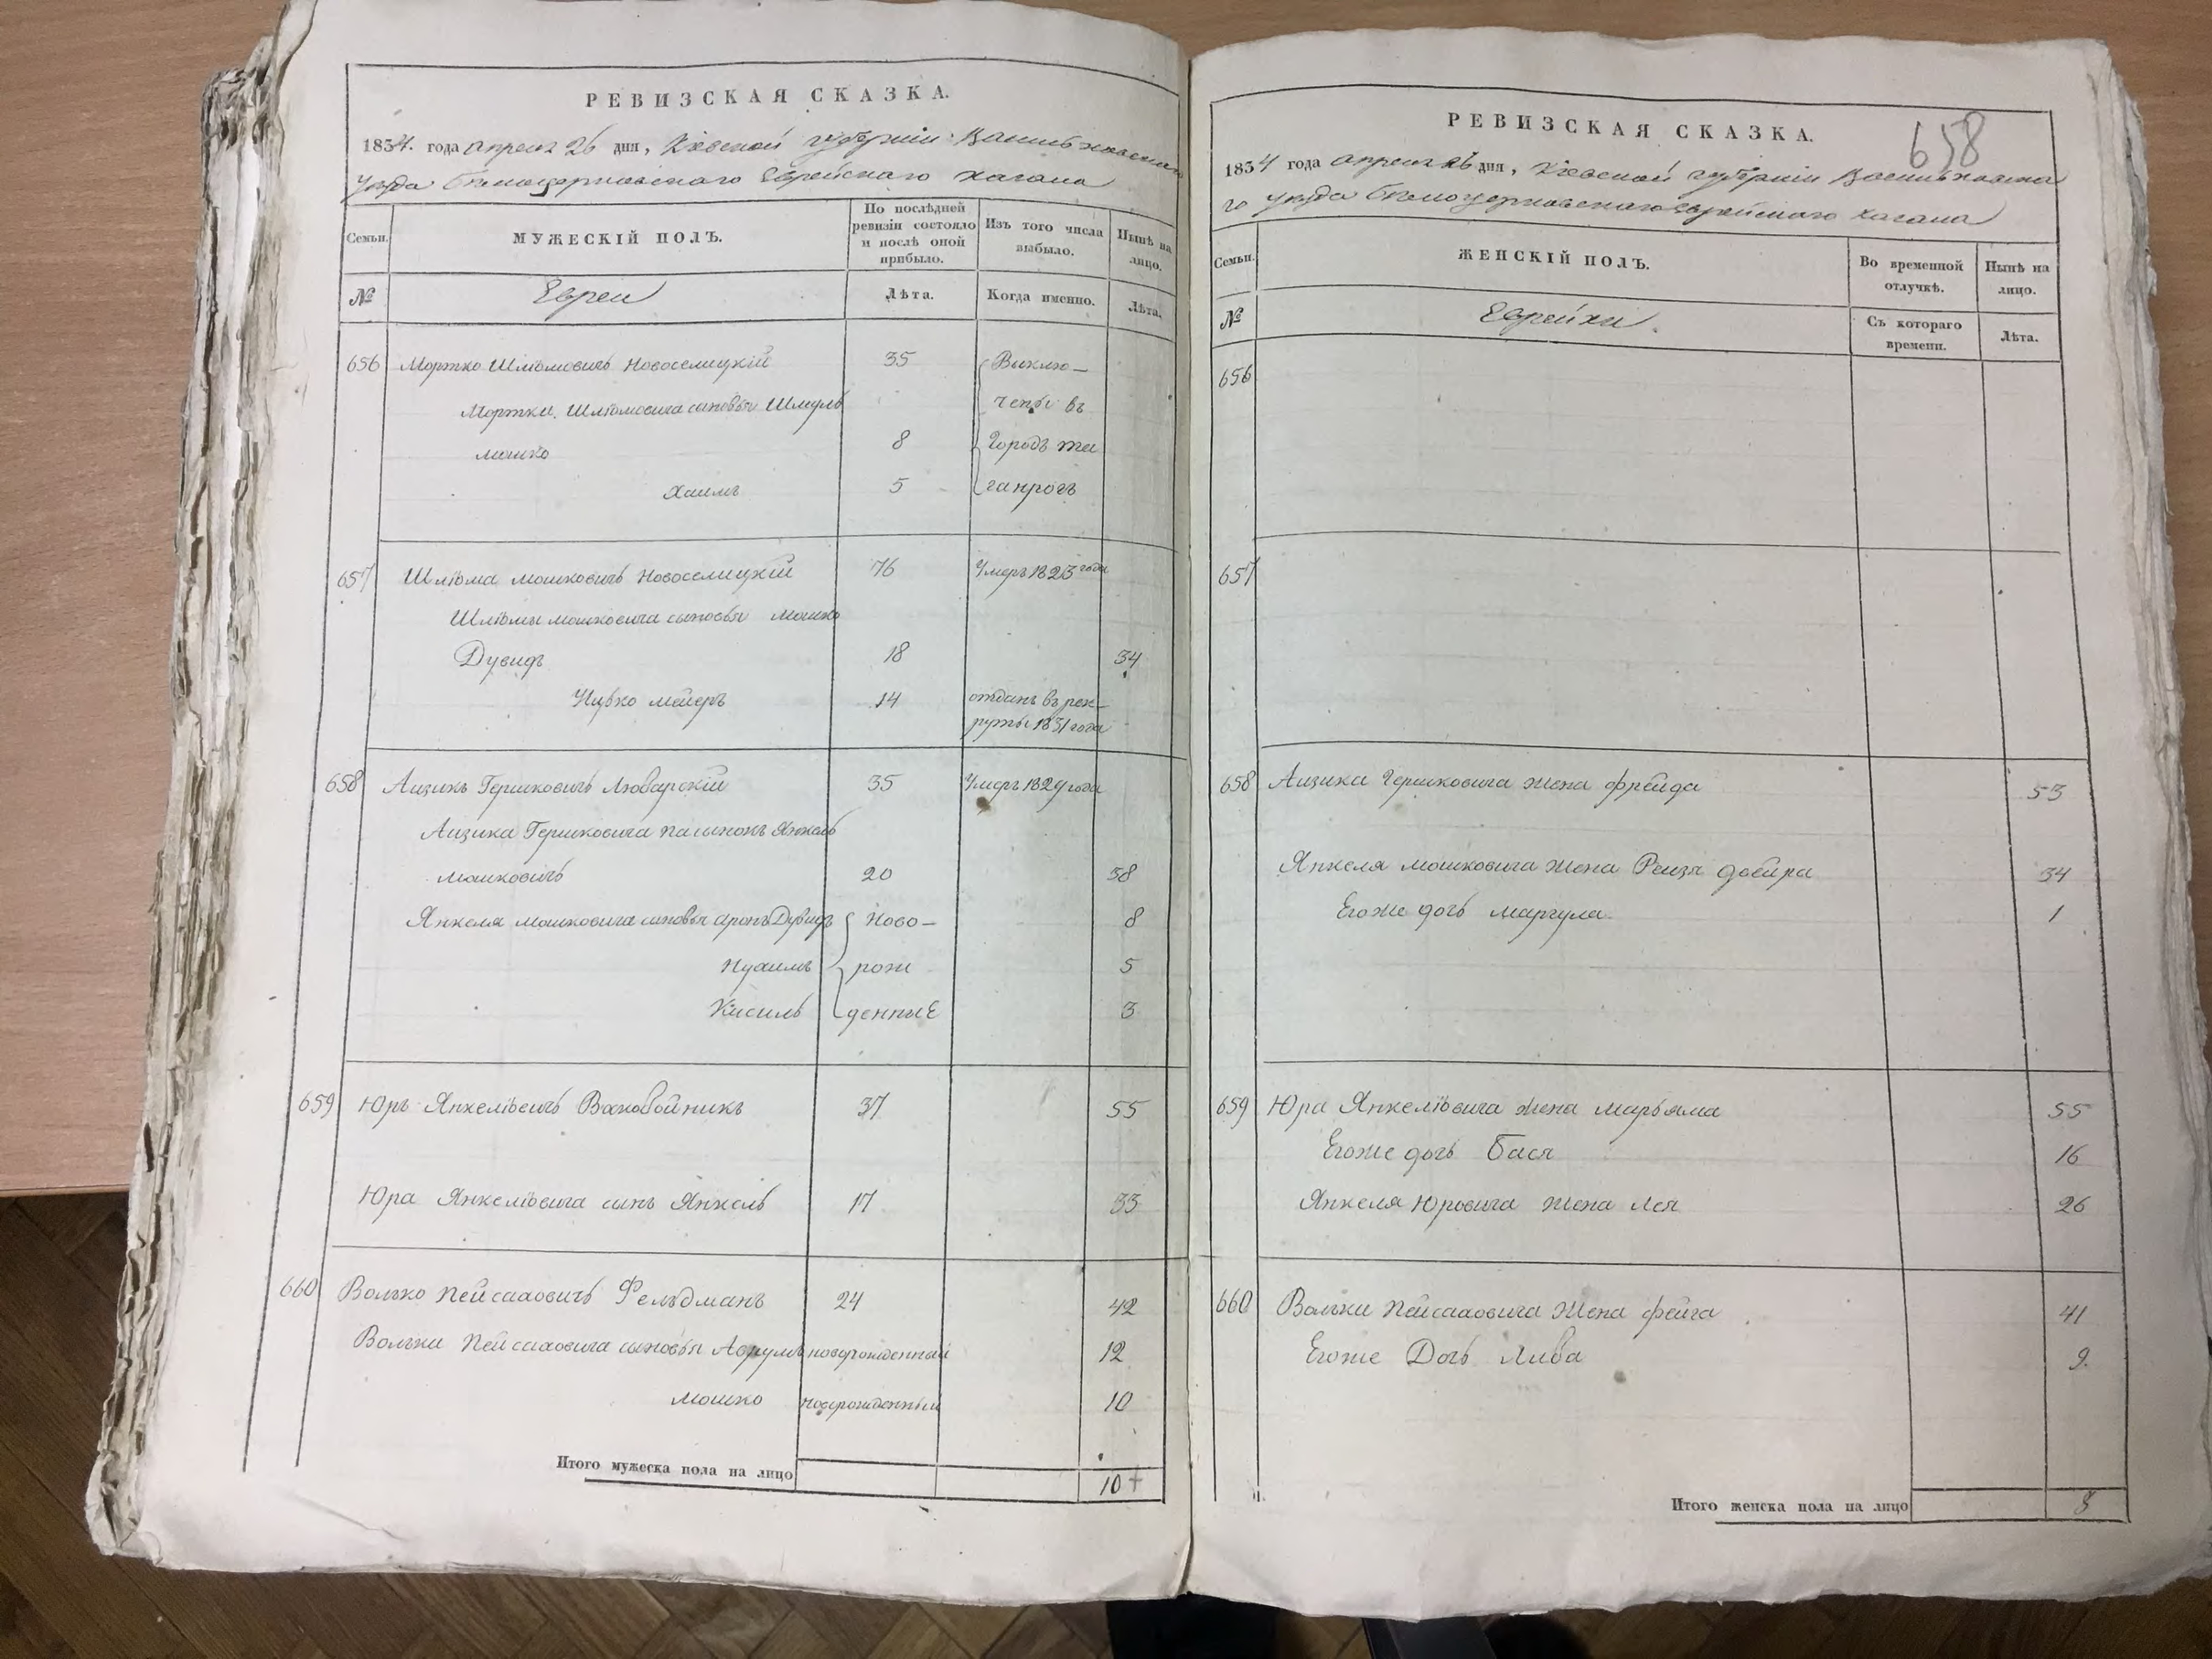 РЕВИЗСКАЯ СКАЗКА.
1834. года апреля 26 дня, Кіевской губерніи Васильковска
Уезда Белоцерковскаго Еврейскаго кагала
Семьи.
МУЖЕСКІЙ ПОЛЪ.
По послѣдней ревизіи состояло и послѣ оной прибыло.
Изъ того числа выбыло.
Нынѣ на лицо.
№
Евреи
Лѣта.
Когда именно.
Лѣта.
656 Мортко Шліомовичъ Новоселицкій 35 Выклю-
Мортки Шліомовича сыновья Шмуль чены въ
мошко 8 Городъ та
Хаимъ 5 ганрогъ
657 Шліома мошковичъ Новоселицкій 76 Умеръ 1823 года
Шліомы мошковича сыновья мошко
Дувидъ 18 34
Ицко мейеръ 14 отданъ въ рек-
руты 1831 года
658 Аизикъ Гершковичъ Любарскій 35 Умеръ 1829 года
Аизика Гершковича пасынокъ Янкель
мошковичъ 20 38
Янкеля мошковича сыновья аронъ Дувидъ Ново- 8
Нухимъ рож 5
Кисиль денные 3
659 Юръ ЯнкеліовичъВаковойникъ 37 55
Юра Янкеліовича сынъ Янкель 17 33
660 Волько Пейсаховичъ Фельдманъ 24 42
Вольки Пейсаховича сыновья Аврумъ новорожденный 12
мошко новорожденный 10
Итого мужеска пола на лицо 10
РЕВИЗСКАЯ СКАЗКА.
658
1834 года апреля 26 дня, Кіевской губерніи Васильковска
го уезда Белоцерковскаго Еврейскаго кагала
Семьи.
ЖЕНСКІЙ ПОЛЪ.
Во временной отлучкѣ.
Нынѣ на лицо.
№
Еврейки.
Съ котораго времени.
Лѣта.
656
657
658 Аизика Гершковича жена фрейда 53
Янкеля мошковича жена Рейзя двейра 34
Егоже дочь маргула 1
659 Юра Янкеліовича жена марьяма 55
Егоже дочь Бася 16
Янкеля Юровича жена Лея 26
660 Вольки Пейсаховича Жена фейга 41
Егоже Дочь Либа 9
Итого женска пола на лицо 8